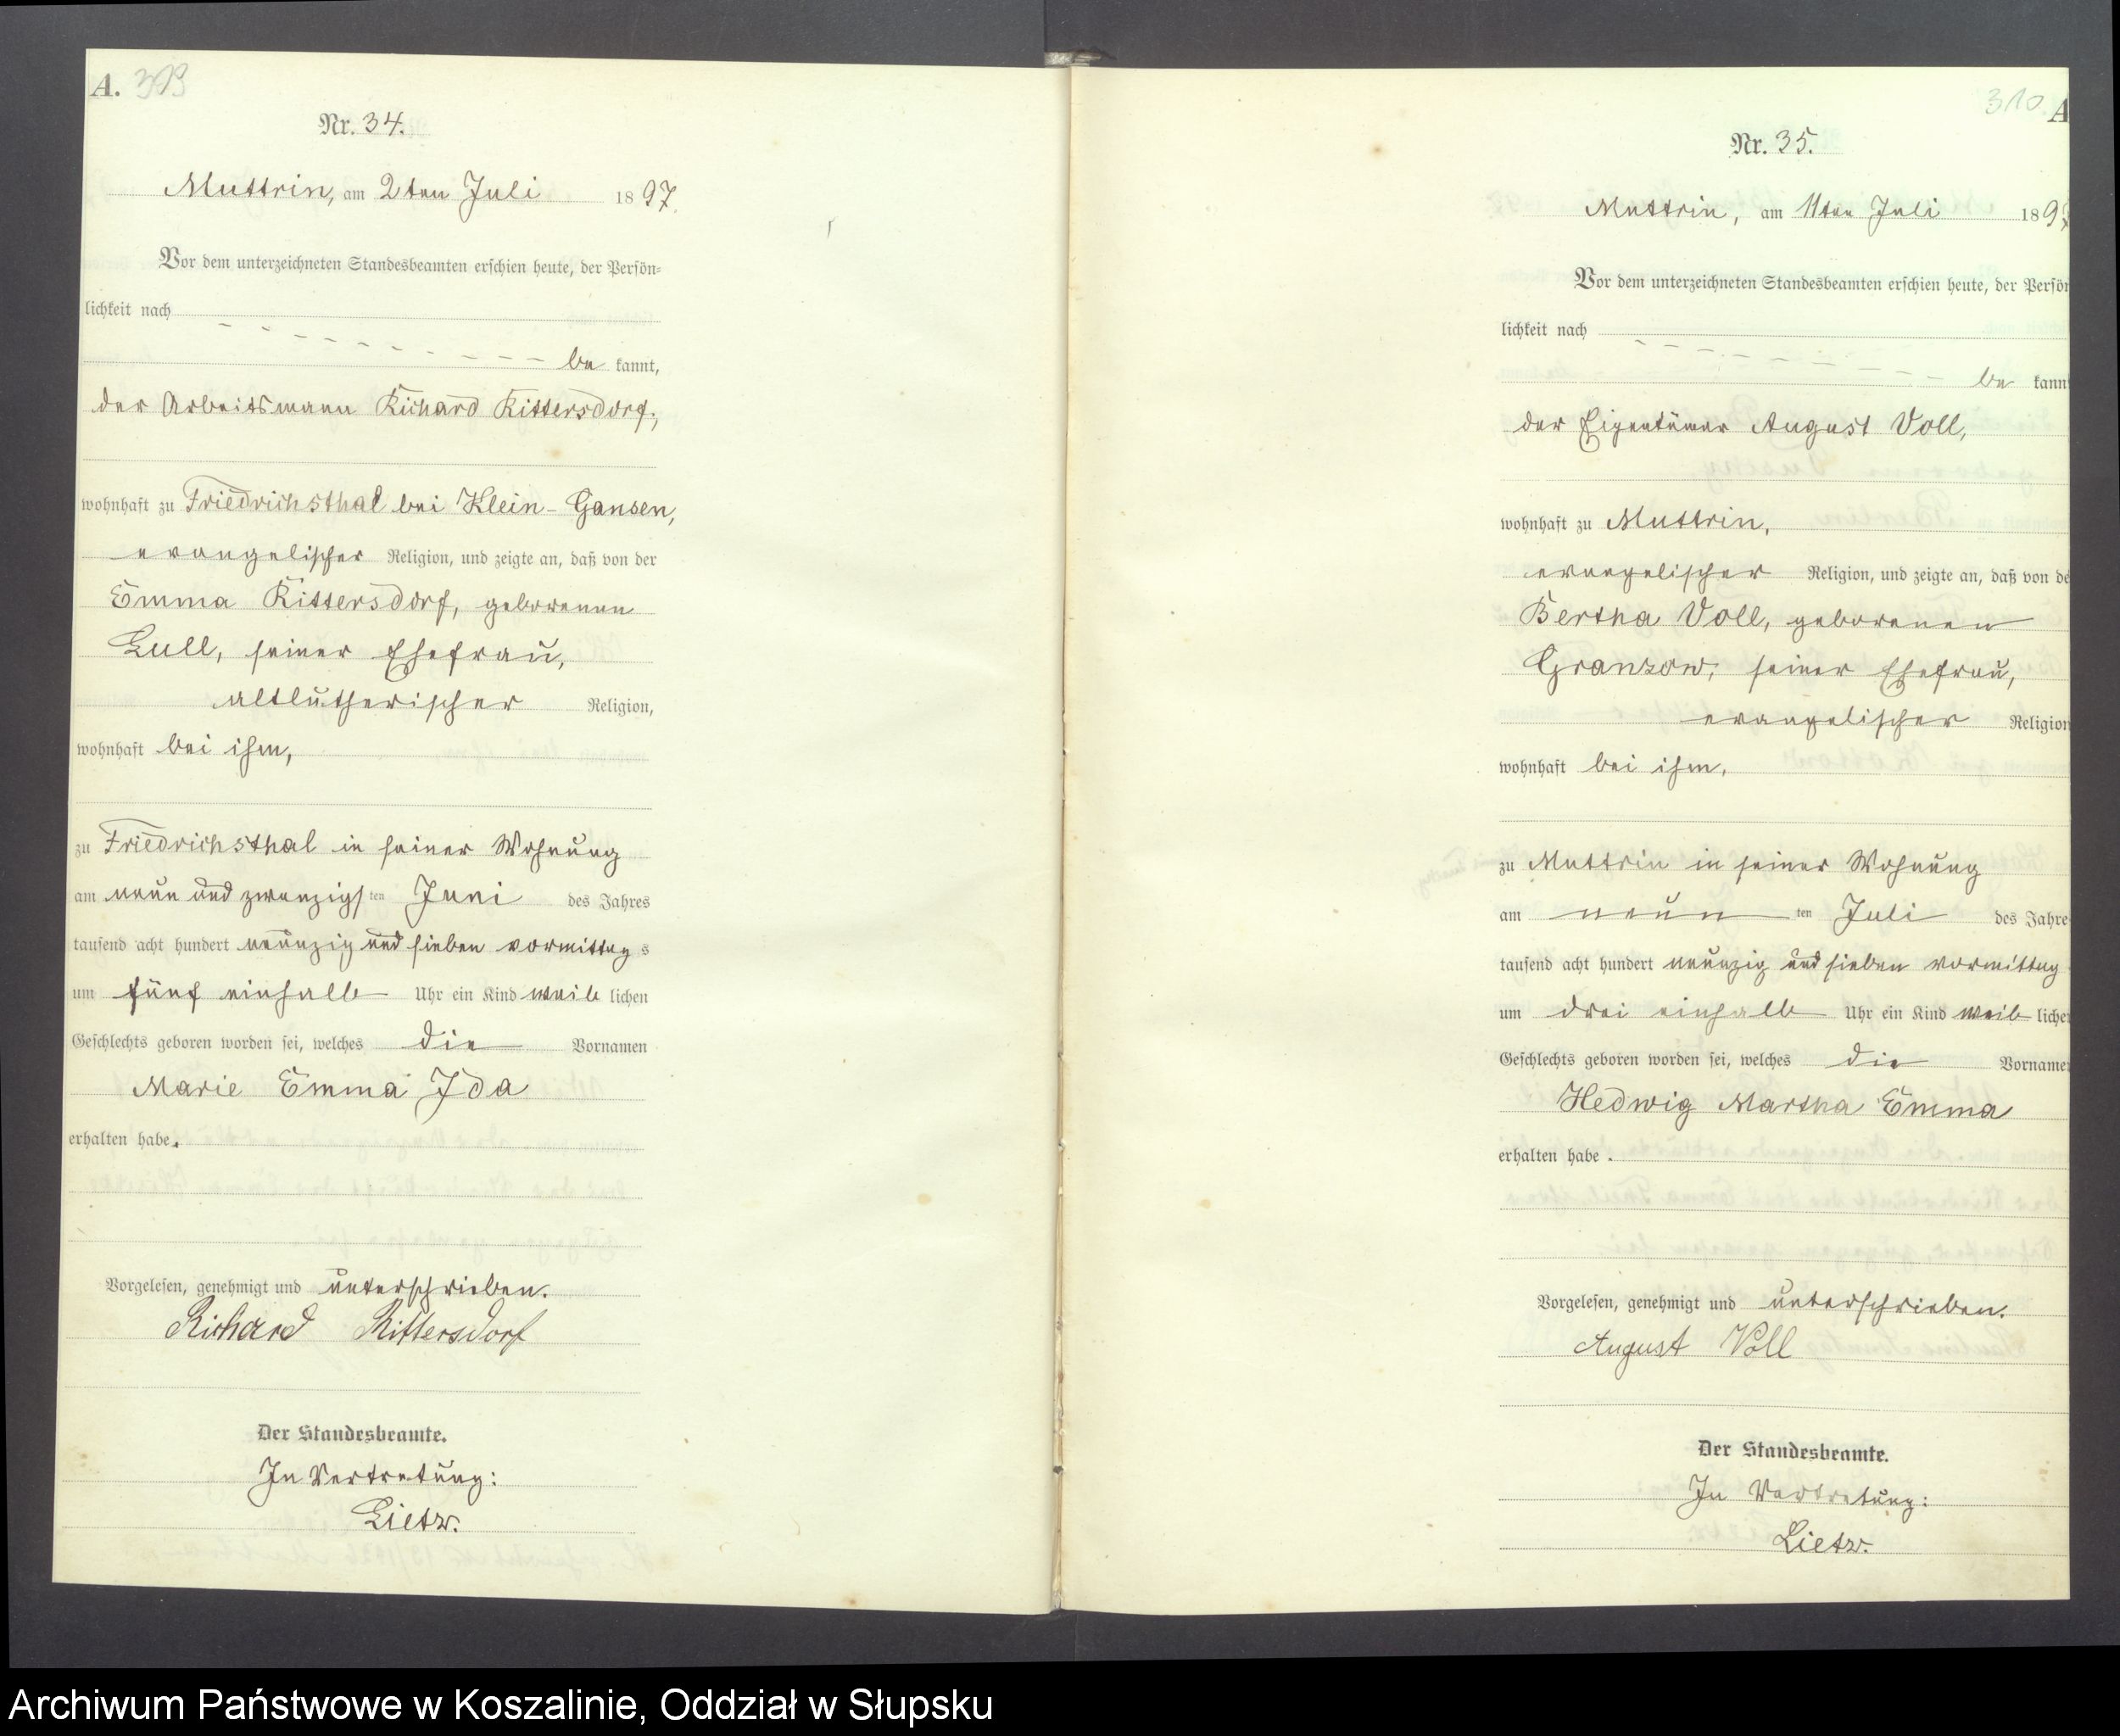 A. 309
Nr. 34.
Muttrin, am 2ten Juli 1897.
Vor dem unterzeichneten Standesbeamten erschien heute, der Persön-
lichkeit nach
be kannt,
der Arbeitsmann Richard Rittersdorf,
wohnhaft zu Friedrichsthal bei Klein-Gansen,
evangelischer Religion, und zeigte an, daß von der
Emma Rittersdorf, geborenen
Lull, seiner Ehefrau,
altlutherischer Religion,
wohnhaft bei ihm,
zu Friedrichsthal in seiner Wohnung
am neun und zwanzigsten Juni des Jahres
tausend acht hundert neunzig und sieben vormittags
um fünf einhalb Uhr ein Kind weiblichen
Geschlechts geboren worden sei, welches die Vornamen
Marie Emma Ida
erhalten habe.
Vorgelesen, genehmigt und unterschrieben.
Richard Rittersdorf
Der Standesbeamte.
In Vertretung:
Lietz.
310. A
Nr. 35.
Muttrin, am 11ten Juli 1897
Vor dem unterzeichneten Standesbeamten erschien heute, der Persön
lichkeit nach
be kannt
der Eigentümer August Voll,
wohnhaft zu Muttrin,
evangelischer Religion, und zeigte an, daß von de
Bertha Voll, geborenen
Granzow, seiner Ehefrau,
evangelischer Religion
wohnhaft bei ihm,
zu Muttrin in seiner Wohnung
am neun ten Juli des Jahre
tausend acht hundert neunzig und sieben vormittag
um drei einhalb Uhr ein Kind weib liche
Geschlechts geboren worden sei, welches die Vorname
Hedwig Martha Emma
erhalten habe.
Vorgelesen, genehmigt und unterschrieben.
August Voll
Der Standesbeamte.
In Vertretung:
Lietz.
Archiwum Państwowe w Koszalinie, Oddział w Słupsku